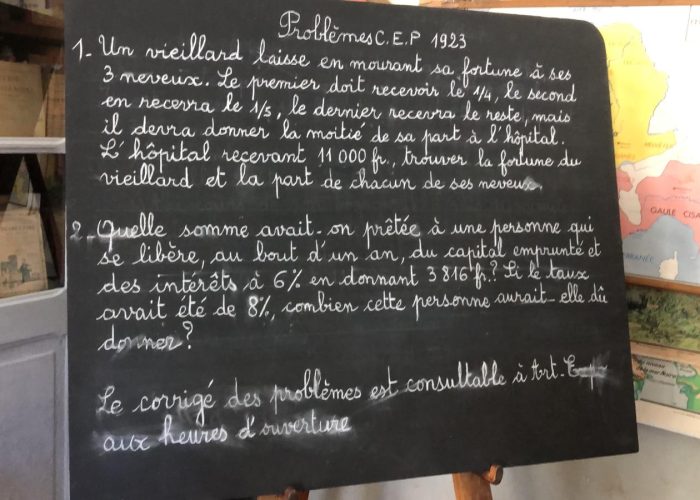 Problèmes C.E.P 1923
1- Un vieillard laisse en mourant sa fortune à ses
3 neveux. Le premier doit recevoir le 1/4, le second
en recevra le 1/5, le dernier recevra le reste, mais
il devra donner la moitié de sa part à l'hôpital.
L'hôpital recevant 11 000 fr., trouver la fortune du
vieillard et la part de chacun de ses neveux.
2- Quelle somme avait-on prêtée à une personne qui
se libère, au bout d'un an, du capital emprunté et
des intérêts à 6% en donnant 3 816 fr.? Si le taux
avait été de 8%, combien cette personne aurait-elle dû
donner?
Le corrigé des problèmes est consultable à Art-
aux heures d'ouverture
GAULE CISA